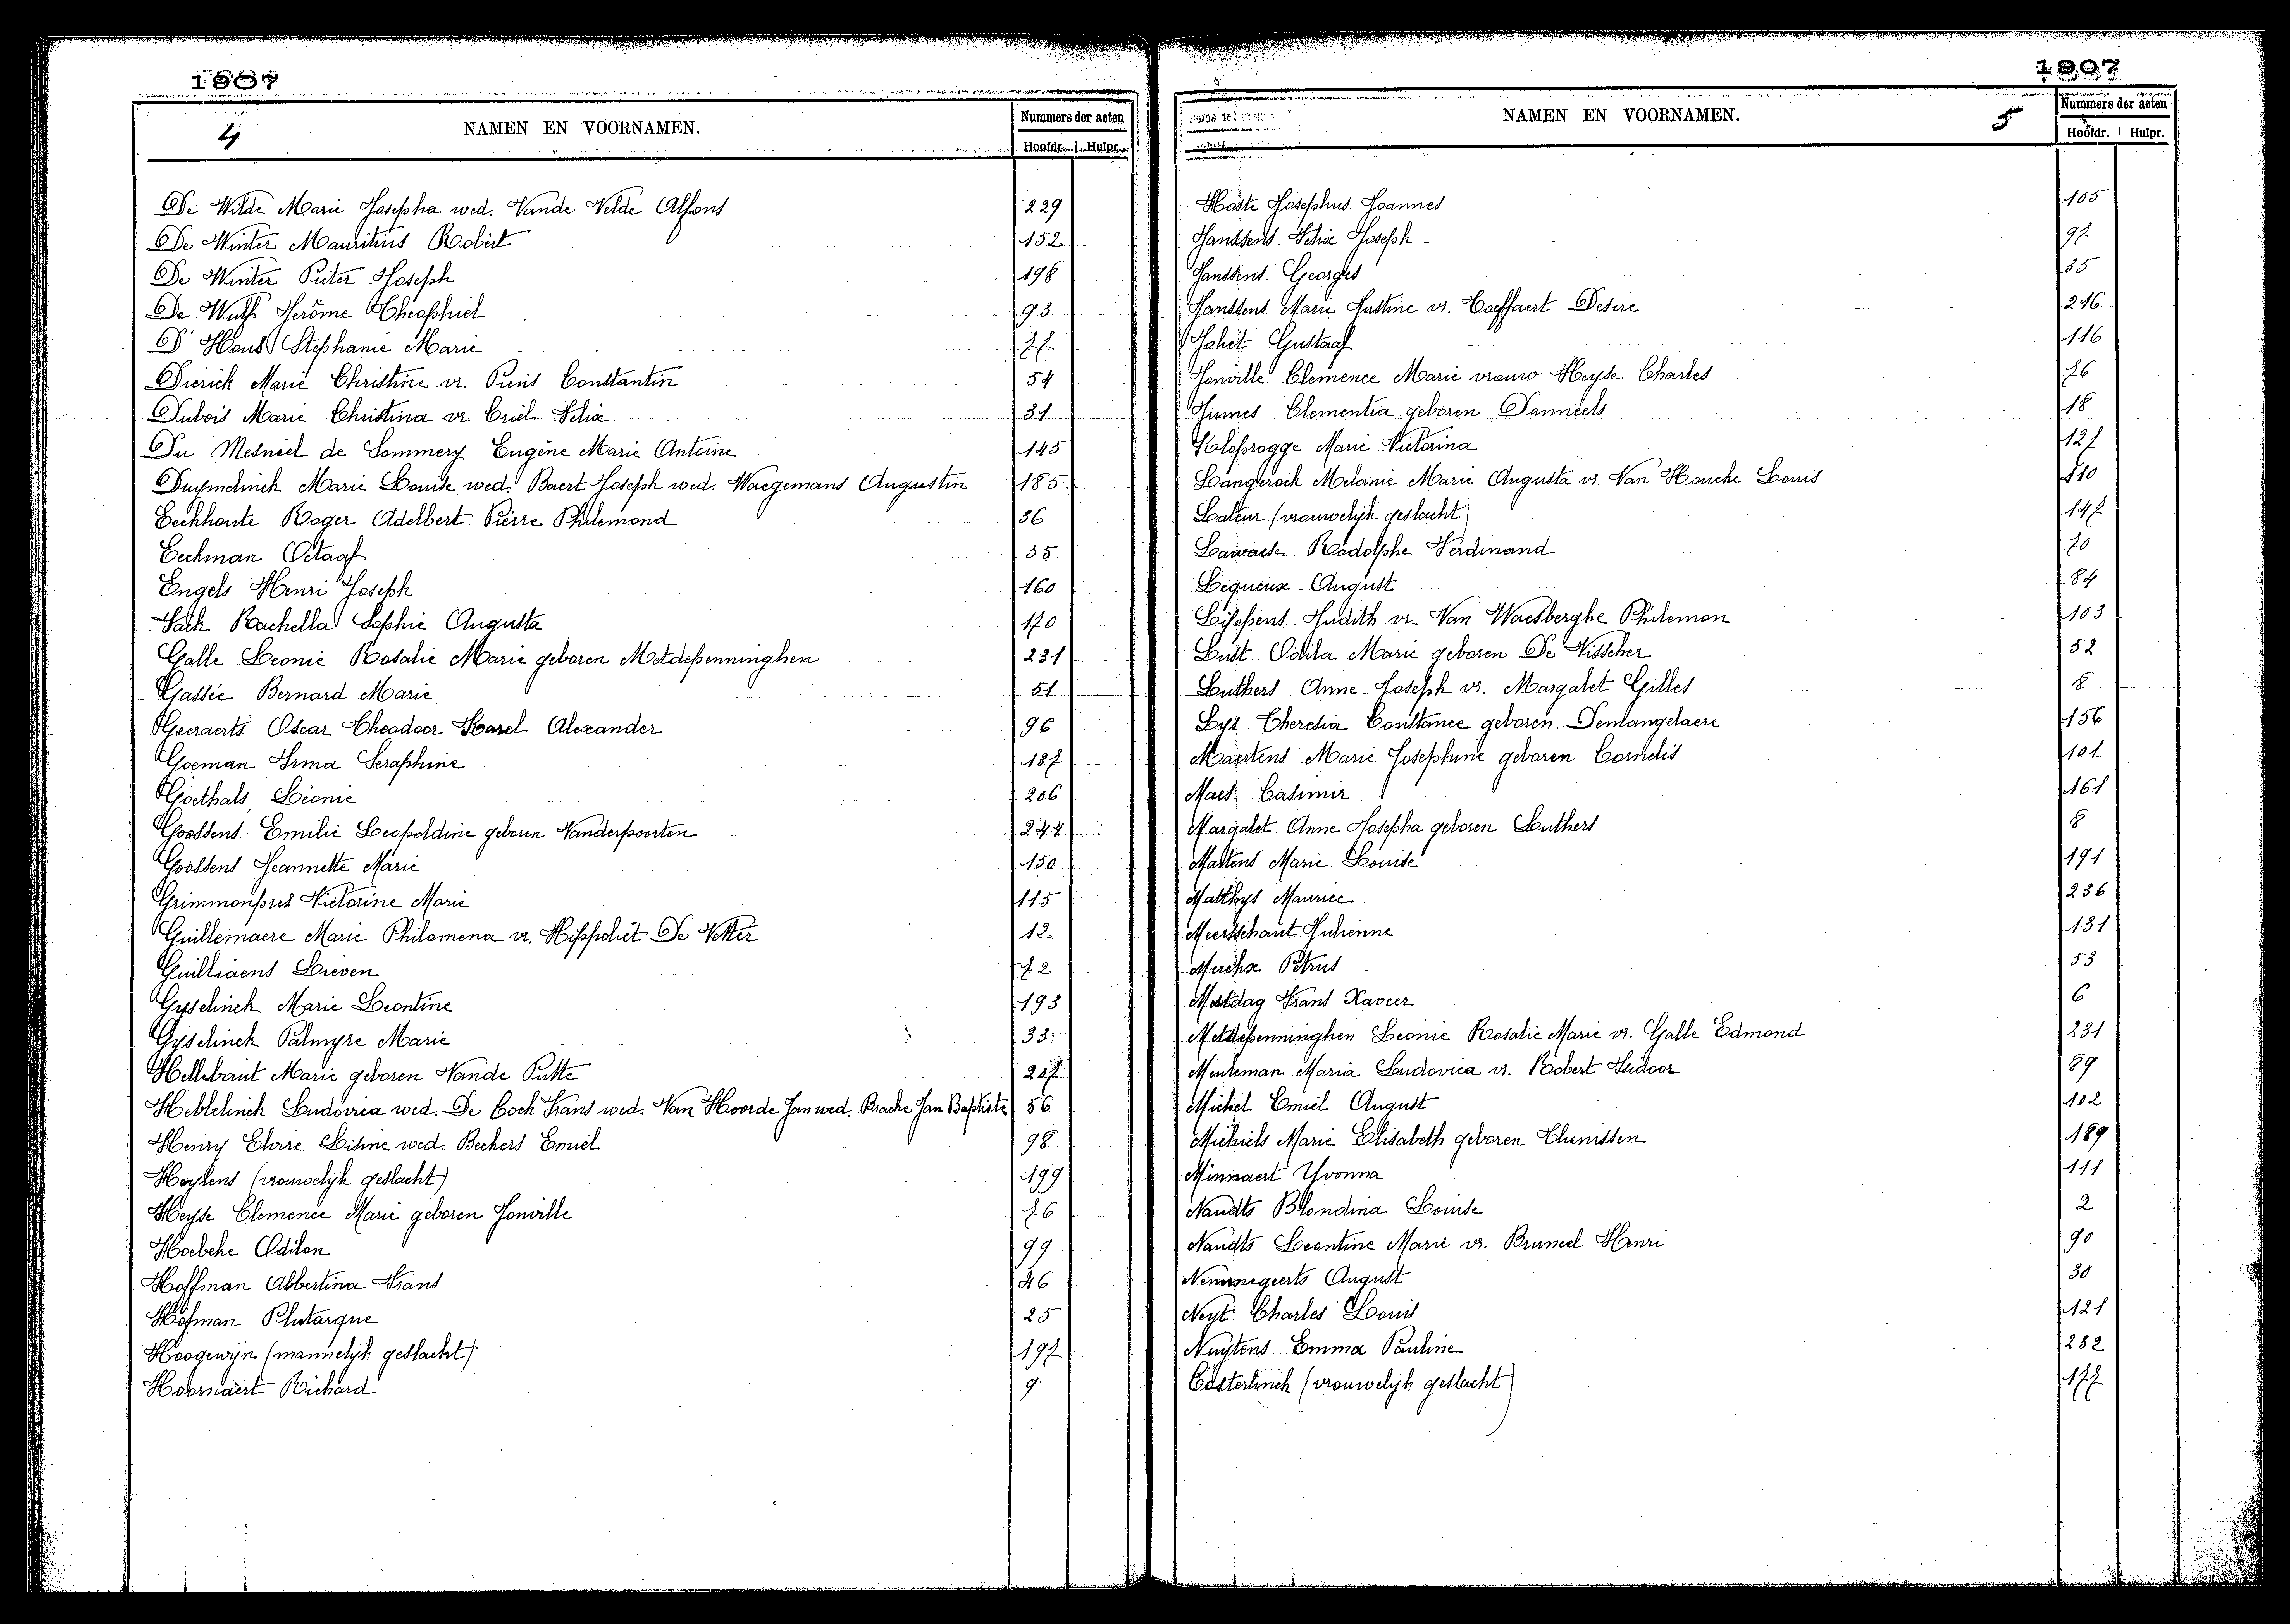 1907
4
NAMEN EN VOORNAMEN.
Nummers der acten
Hoofdr. Hulpr.
De Wilde Marie Josepha wed. Vande Velde Alfons 229
De Winter Mauritius Robert 152
De Winter Pieter Joseph 198
De Wulf Jerôme Theophiel 93
D'Hons Stephanie Marie 77
Dierick Marie Christine vr. Piens Constantin 54
Dubois Marie Christina vr. Criel Felix 31
Du Mesniel de Sommery Eugène Marie Antoine 145
Duymelinck Marie Louise wed. Baert Joseph wed. Waegemans Augustin 185
Eeckhoute Roger Adelbert Pierre Philemond 36
Eeckman Octaaf 55
Engels Henri Joseph 160
Fack Rachella Sophie Augusta 170
Galle Leonie Rosalie Marie geboren Metdepenninghen 231
Gassée Bernard Marie 51
Geeraerts Oscar Theodoor Karel Alexander 96
Goeman Irma Seraphine 137
Goethals Léonie 206
Goossens Emilie Leopoldine geboren Vanderpoorten 244
Goossens Jeannette Marie 150
Grimmonprez Victorine Marie 115
Guillemaere Marie Philomena vr. Hippoliet De Vetter 12
Guilliaens Lieven 72
Gyselinck Marie Leontine 193
Gyselinck Palmyre Marie 33
Hellebaut Marie geboren Vande Putte 207
Heblelinck Ludovica wed. De Cock Frans wed. Van Hoorde Jan wed. Bracke Jan Baptiste 56
Henry Elvire Liline wed. Beckers Emiel 98
Heylens (vrouwelijk geslacht) 199
Heyse Clemence Marie geboren Jonville 76
Hoebeke Odilon 99
Hoffman Albertina Frans 46
Hofman Plutarque 25
Hoogewijn (mannelijk geslacht) 197
Hoornaert Richard 9
1907
NAMEN EN VOORNAMEN.
5
Nummers der acten
Hoofdr. Hulpr.
Hoste Josephus Joannes 105
Janssens Felix Joseph 97
Janssens Georges 35
Janssens Marie Justine vr. Coeffaert Desire 216
Joliet Gustaaf 116
Jonville Clemence Marie vrouw Heyse Charles 76
Jumes Clementia geboren Danneels 18
Klopsrogge Marie Victorina 127
Langerock Melanie Marie Augusta vr. Van Houcke Louis 110
Lateur (vrouwelijk geslacht) 147
Lawaele Rodolphe Ferdinand 70
Lequeux August 84
Lippens Judith vr. Van Waesberghe Philemon 103
Lust Odila Marie geboren De Visscher 52
Luthers Anne Joseph vr. Margalet Gilles 8
Lys Theresia Constance geboren Demangelaere 156
Maertens Marie Josephine geboren Cornelis 101
Maes Casimir 161
Margalet Anne Josepha geboren Luthers 8
Martens Marie Louise 191
Matthys Maurice 236
Meersschaut Julienne 131
Merckx Petrus 53
Mestdag Frans Xaveer 6
Metdepenninghen Leonie Rosalie Marie vr. Galle Edmond 231
Meuleman Maria Ludovica vr. Robert Isidoor 89
Michel Emiel August 102
Michiels Marie Elisabeth geboren Thunissen 189
Minnaert Yvonna 111
Naudts Blondina Louise 2
Naudts Leontine Marie vr. Bruneel Henri 90
Nemmegeerts August 30
Neyt Charles Louis 121
Nuytens Emma Pauline 232
Oosterlinck (vrouwelijk geslacht) 177